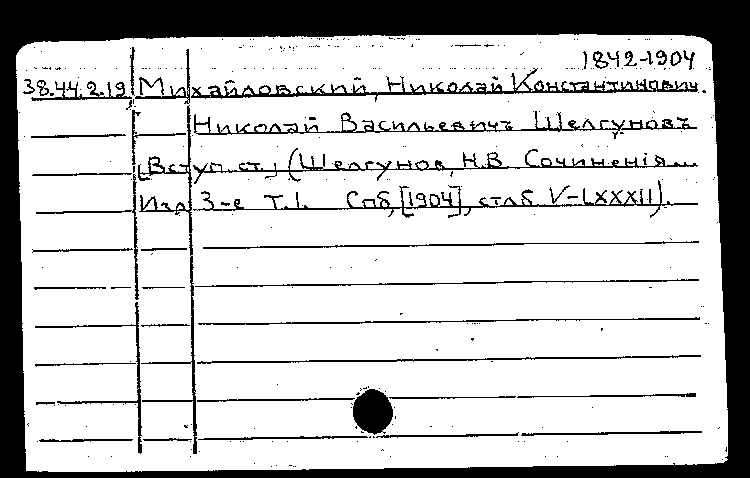 1842-1904
38.44.2.19 Михайловский, Николай Константинович.
Николай Васильевичъ Шелгуновъ
[Вступ. ст.] (Шелгунов, Н.В. Сочиненія...
Изд 3-е Т.1. Спб, [1904], стлб V-LXXXII).